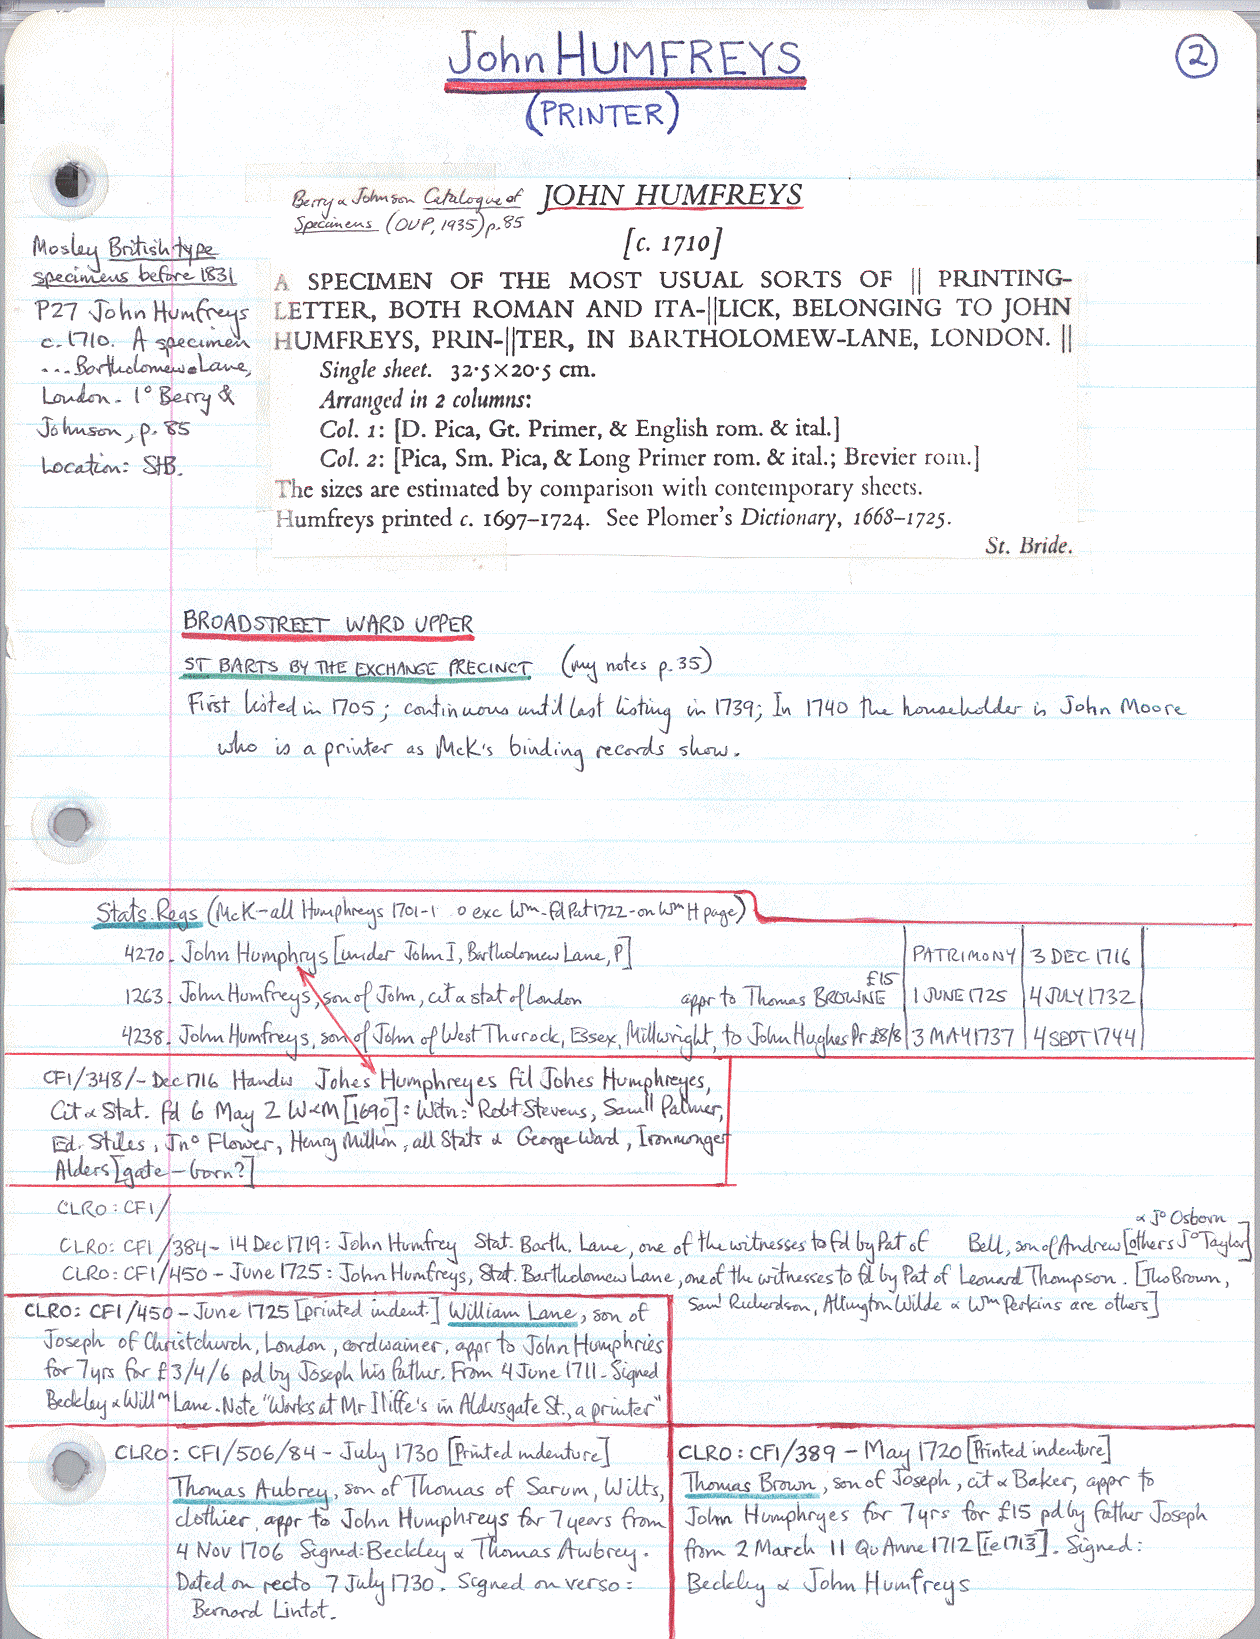 John HUMFREYS
(PRINTER)
2
Berry & Johnson Catalogue of
Specimens (OUP, 1935) p. 85
JOHN HUMFREYS
[c. 1710]
A SPECIMEN OF THE MOST USUAL SORTS OF || PRINTING-
LETTER, BOTH ROMAN AND ITA-||LICK, BELONGING TO JOHN
HUMFREYS, PRIN-||TER, IN BARTHOLOMEW-LANE, LONDON. ||
Single sheet. 32·5×20·5 cm.
Arranged in 2 columns:
Col. 1: [D. Pica, Gt. Primer, & English rom. & ital.]
Col. 2: [Pica, Sm. Pica, & Long Primer rom. & ital.; Brevier rom.]
The sizes are estimated by comparison with contemporary sheets.
Humfreys printed c. 1697–1724. See Plomer's Dictionary, 1668–1725.
St. Bride.
Mosley British type
specimens before 1831
P27 John Humfreys
c. 1710. A specimen
... Bartholomew-Lane,
London. 1° Berry &
Johnson, p. 85
Location: StB.
BROADSTREET WARD UPPER
ST BARTS BY THE EXCHANGE PRECINCT (my notes p. 35)
First listed in 1705; continuous until last listing in 1739; In 1740 the householder is John Moore
who is a printer as McK's binding records show.
Stats. Regs (McK-all Humphreys 1701-1 0 exc Wm-fd Pat 1722-on Wm H page)
4270. John Humphrys [under John I, Bartholomew Lane, P] PATRIMONY 3 DEC 1716
1263. John Humfreys, son of John, cit & stat of London appr to Thomas BROWNE £15 1 JUNE 1725 4 JULY 1732
4238. John Humfreys, son of John of West Thurock, Essex, Millwright, to John Hughes Pr £8/8 3 MAY 1737 4 SEPT 1744
CF1/348/- Dec 1716 Handw Johes Humphreyes fil Johes Humphreyes,
Cit & Stat. fd 6 May 2 W&M [1690]: Witn: Robt Stevens, Samll Palmer,
Ed. Stiles, Jno Flower, Henry Million, all Stats & George Ward, Ironmonger
Alders[gate - born?]
CLRO: CF1/
CLRO: CF1/384- 14 Dec 1719: John Humfrey Stat. Barth. Lane, one of the witnesses to fd by Pat of Bell, son of Andrew [others Jo Taylor
& Jo Osborn]
CLRO: CF1/450 - June 1725: John Humfreys, Stat. Bartholomew Lane, one of the witnesses to fd by Pat of Leonard Thompson. [Tho Brown,
Saml Richerdson, Allington Wilde & Wm Perkins are others]
CLRO: CF1/450- June 1725 [printed indent.] William Lane, son of
Joseph of Christchurch, London, cordwainer, appr to John Humphries
for 7yrs for £3/4/6 pd by Joseph his father. From 4 June 1711. Signed
Beckley & Willm Lane. Note "Works at Mr Iliffe's in Aldersgate St., a printer"
CLRO: CF1/506/84 - July 1730 [Printed indenture]
Thomas Aubrey, son of Thomas of Sarum, Wilts,
clothier, appr to John Humphreys for 7 years from
4 Nov 1706 Signed: Beckley & Thomas Awbrey.
Dated on recto 7 July 1730. Signed on verso:
Bernard Lintot.
CLRO: CF1/389 - May 1720 [Printed indenture]
Thomas Brown, son of Joseph, cit & Baker, appr to
John Humphryes for 7yrs for £15 pd by father Joseph
from 2 March 11 Qu Anne 1712 [ie 1713]. Signed:
Beckley & John Humfreys